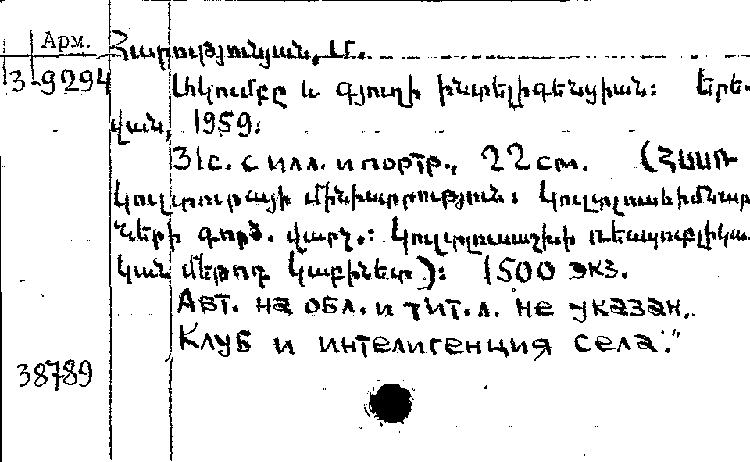 Арм. Հարությունյան, Մ.
3-9294 Ակումբը և գյուղի ինտելիգենցիան: Երե-
վան, 1959.
31с. с илл. и портр., 22 см. (ՀՍՍՌ
կուլտուրայի մինիստրություն. Կուլտլուսհիմնար
ների գործ. վարչ.: Կուլտլուսաշխի ռեսպուբլիկա
կան մեթոդ կաբինետ): 1500 экз.
Авт. на обл. и тит. л. не указан.
Клуб и интелигенция села."
38789